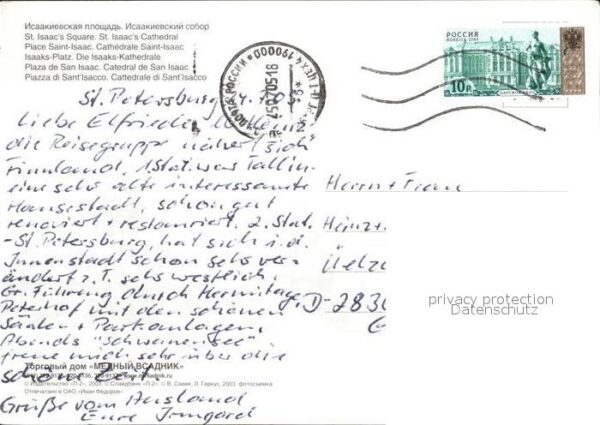 Исаакиевская площадь. Исаакиевский собор
St. Isaac's Square. St. Isaac's Cathedral
Place Saint-Isaac. Cathédrale Saint-Isaac
Isaaks-Platz. Die Isaaks-Kathedrale
Plaza de San Isaac. Catedral de San Isaac
Piazza di Sant'Isacco. Cattedrale di Sant'Isacco
ПОЧТА РОССИИ
190000
25070518
РОССИЯ
ROSSIJA 2003
10р
St. Petersburg
Liebe Elfriede Heinz
die Reisegruppe nähert sich
Finnland, 1. Stat. war Tallin
eine sehr alte interessante
Hansestadt, schon gut
renoviert + restauriert. 2. Stat.
- St. Petersburg, hat sich i. d.
Innenstadt schon sehr ver-
ändert z. T. sehr westlich.
Gr. Führung durch Hermitage,
Peterhof mit den schönen
Sälen + Parkanlagen,
Abends "Schwanensee"
freue mich sehr über die
schöne Zeit.
Grüße vom Ausland
Eure Irmgard
Herrn + Frau
Heinz +
Uelze
D-2830
privacy protection
Datenschutz
Торговый дом «МЕДНЫЙ ВСАДНИК»
© Издательство «П-2», 2003. © Славдбанк «П-2». © В. Савик, Л. Геркус, 2003: фотосъемка
Отпечатано в ОАО «Иван Федоров»